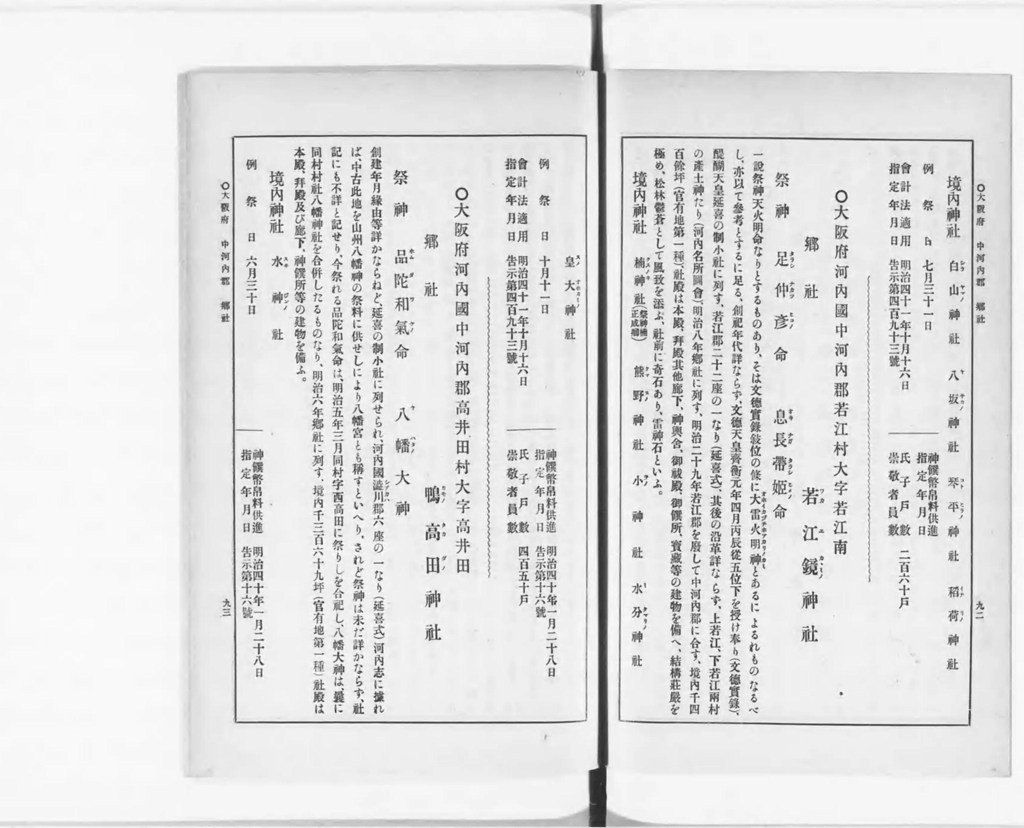 〇大阪府　中河內郡　鄕社
九二
境內神社　白山神社　八坂神社　琴平神社　稻荷神社
例祭日　七月三十一日
會計法適用　明治四十一年十月十六日
指定年月日　告示第四百九十三號
神饌幣帛料供進
指定年月日
氏子戶數　二百六十戶
崇敬者員數
〇大阪府河內國中河內郡若江村大字若江南
鄕社　若江鏡神社
祭神　足仲彥命　息長帶姬命
一說祭神天火明命なりとするものあり、そは文德實錄敍位の條に大雷火明神とあるによるれものなるべ
し、亦以て參考とするに足る、創祀年代詳ならず、文德天皇齊衡元年四月丙辰從五位下を授け奉り(文德實錄)、
醍醐天皇延喜の制小社に列す、若江郡二十二座の一なり(延喜式)、其後の沿革詳ならず、上若江、下若江兩村
の產土神たり(河內名所圖會)明治八年鄕社に列す、明治二十九年若江郡を廢して中河內郡に合す、境內千四
百餘坪(官有地第一種)社殿は本殿、拜殿其他廊下、神輿舍、御祓殿、御饌所、寶藏等の建物を備へ、結構莊嚴を
極め、松林鬱蒼として風致を添ふ、社前に奇石あり、雷神石といふ。
境內神社　楠神社(祭神楠正成郷)　熊野神社　小神社　水分神社
皇大神社
例祭日　十月十一日
會計法適用　明治四十一年十月十六日
指定年月日　告示第四百九十三號
神饌幣帛料供進　明治四十年一月二十八日
指定年月日　告示第十六號
氏子戶數　四百五十戶
崇敬者員數
〇大阪府河內國中河內郡高井田村大字高井田
鄕社　鴨高田神社
祭神　品陀和氣命　八幡大神
創建年月緣由等詳かならねど、延喜の制小社に列せられ、河內國澁川郡六座の一なり(延喜式)河內志に據れ
ば、中古此地を山州八幡神の祭料に供せしにより八幡宮とも稱すといへり、されど祭神は未だ詳かならず、社
記にも不詳と記せり、今祭れる品陀和氣命は、明治五年三月同村字西高田に祭りしを合祀し、八幡大神は、曩に
同村村社八幡神社を合併したるものなり、明治六年鄕社に列す、境內千三百六十九坪(官有地第一種)社殿は
本殿、拜殿及び廊下、神饌所等の建物を備ふ。
境內神社　水神社
例祭日　六月三十日
神饌幣帛料供進　明治四十年一月二十八日
指定年月日　告示第十六號
〇大阪府　中河內郡　鄕社
九三